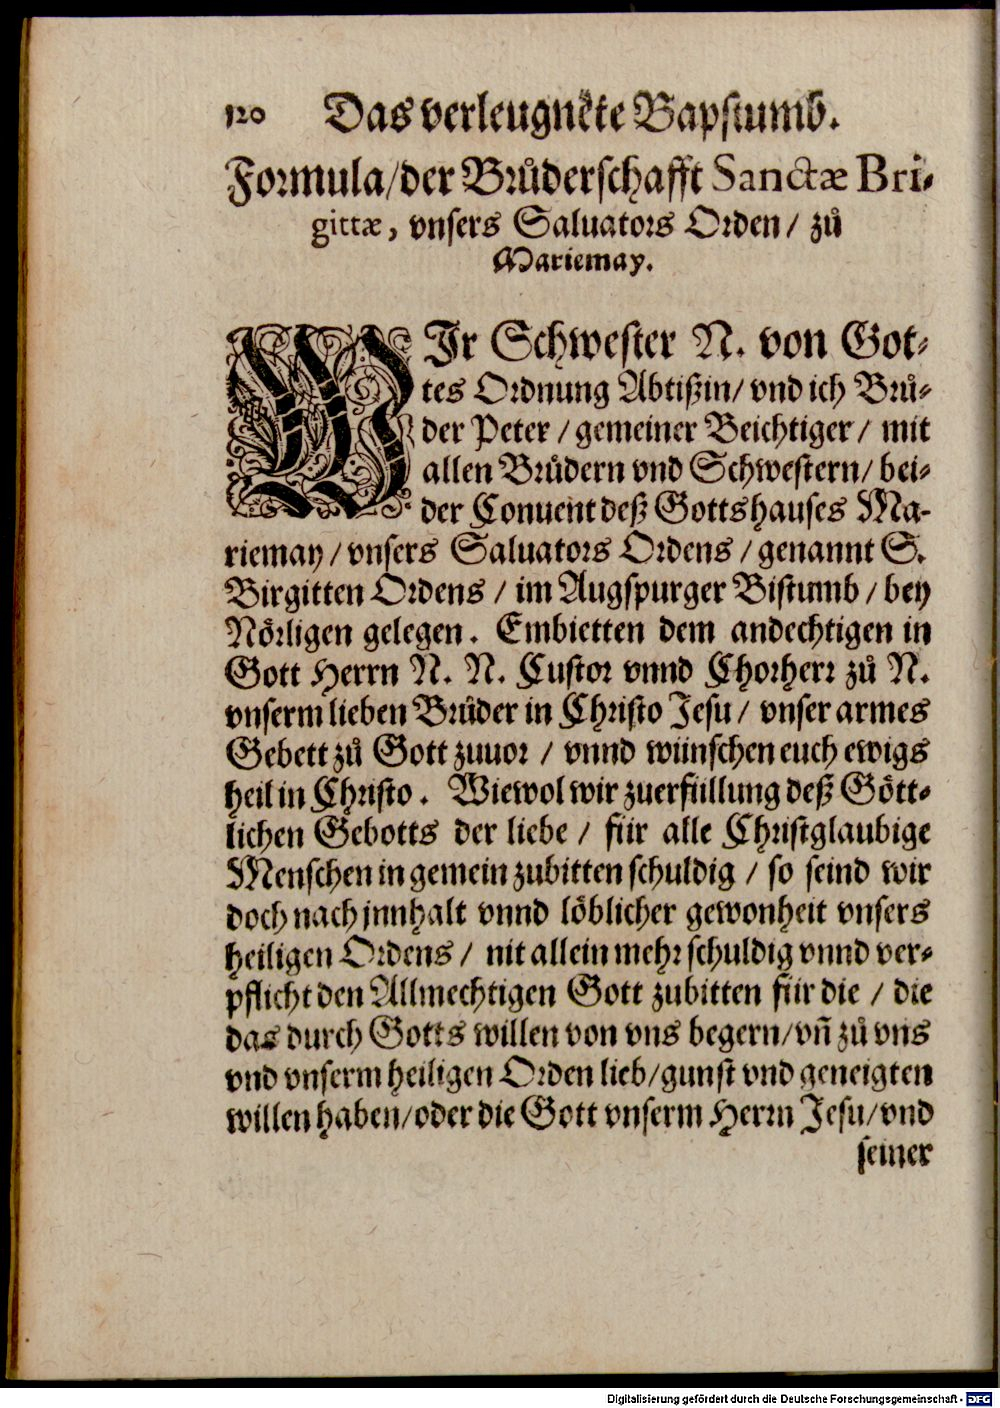 120 Das verleugnete Bapstumb.
Formula/der Brůderschafft Sanctæ Bri-
gittæ, vnsers Saluators Orden/ zů
Mariemay.
WIr Schwester N. von Got-
tes Ordnung Abtißin/ vnd ich Brů-
der Peter/gemeiner Beichtiger/ mit
allen Brůdern vnd Schwestern/ bei-
der Conuent deß Gottshauses Ma-
riemay/vnsers Saluators Ordens/genannt S.
Birgitten Ordens/ im Augspurger Bistumb/bey
Nörligen gelegen. Embietten dem andechtigen in
Gott Herrn N. N. Custor vnnd Chorherr zů N.
vnserm lieben Brůder in Christo Jesu/ vnser armes
Gebett zů Gott zuuor/ vnnd wünschen euch ewigs
heil in Christo. Wiewol wir zuerfüllung deß Gött-
lichen Gebotts der liebe/ für alle Christglaubige
Menschen in gemein zubitten schuldig/ so seind wir
doch nach jnnhalt vnnd löblicher gewonheit vnsers
heiligen Ordens/ nit allein mehr schuldig vnnd ver-
pflicht den Allmechtigen Gott zubitten für die/ die
das durch Gotts willen von vns begern/vñ zů vns
vnd vnserm heiligen Orden lieb/gunst vnd geneigten
willen haben/oder die Gott vnserm Herrn Jesu/vnd
seiner
Digitalisierung gefördert durch die Deutsche Forschungsgemeinschaft - DFG